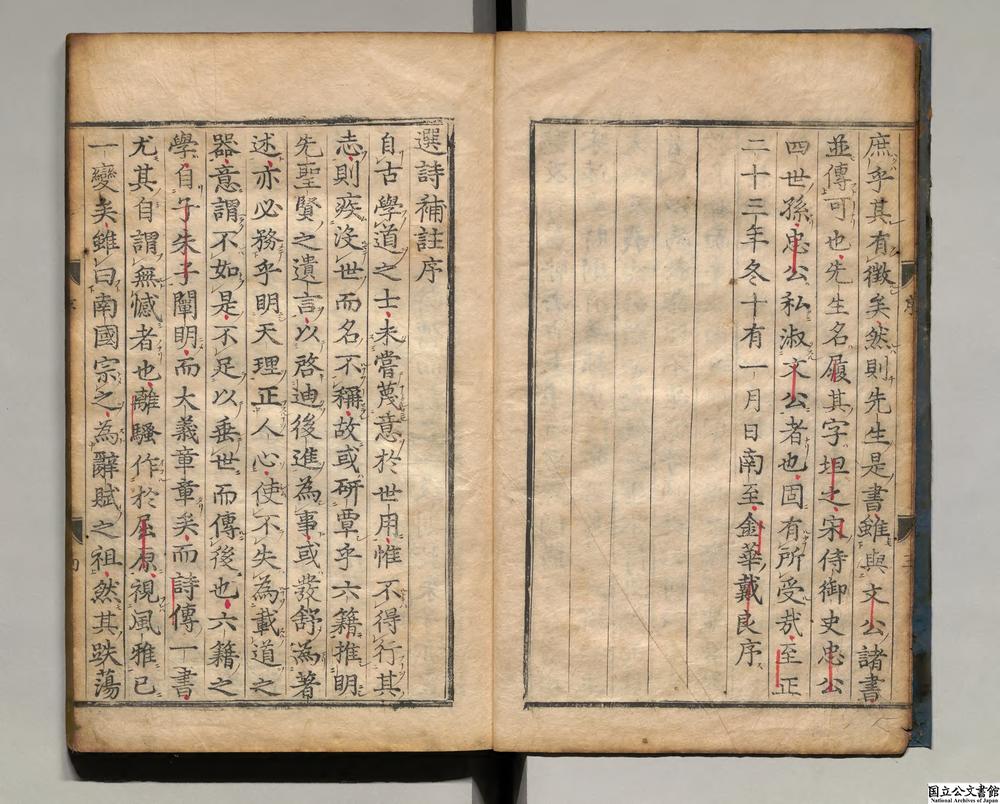 庶乎其有徵矣然則先生是書雖與文公諸書
並傳可也先生名履其字坦之宋侍御史忠公
四世孫忠公私淑文公者也固有所受哉至正
二十三年冬十有一月日南至金華戴良序
選詩補註序
自古學道之士未嘗蔑意於世用惟不得行其
志則疾沒世而名不稱故或研覃乎六籍推明
先聖賢之遺言以啓迪後進為事或發舒為著
述亦必務乎明天理正人心使不失為載道之
器意謂不如是不足以垂世而傳後也六籍之
學自子朱子闡明而大義章章矣而詩傳一書
尤其自謂無憾者也離騷作於屈原視風雅已
一變矣雖曰南國宗之為辭賦之祖然其跌蕩
序
三
序
四
国立公文書館
National Archives of Japan